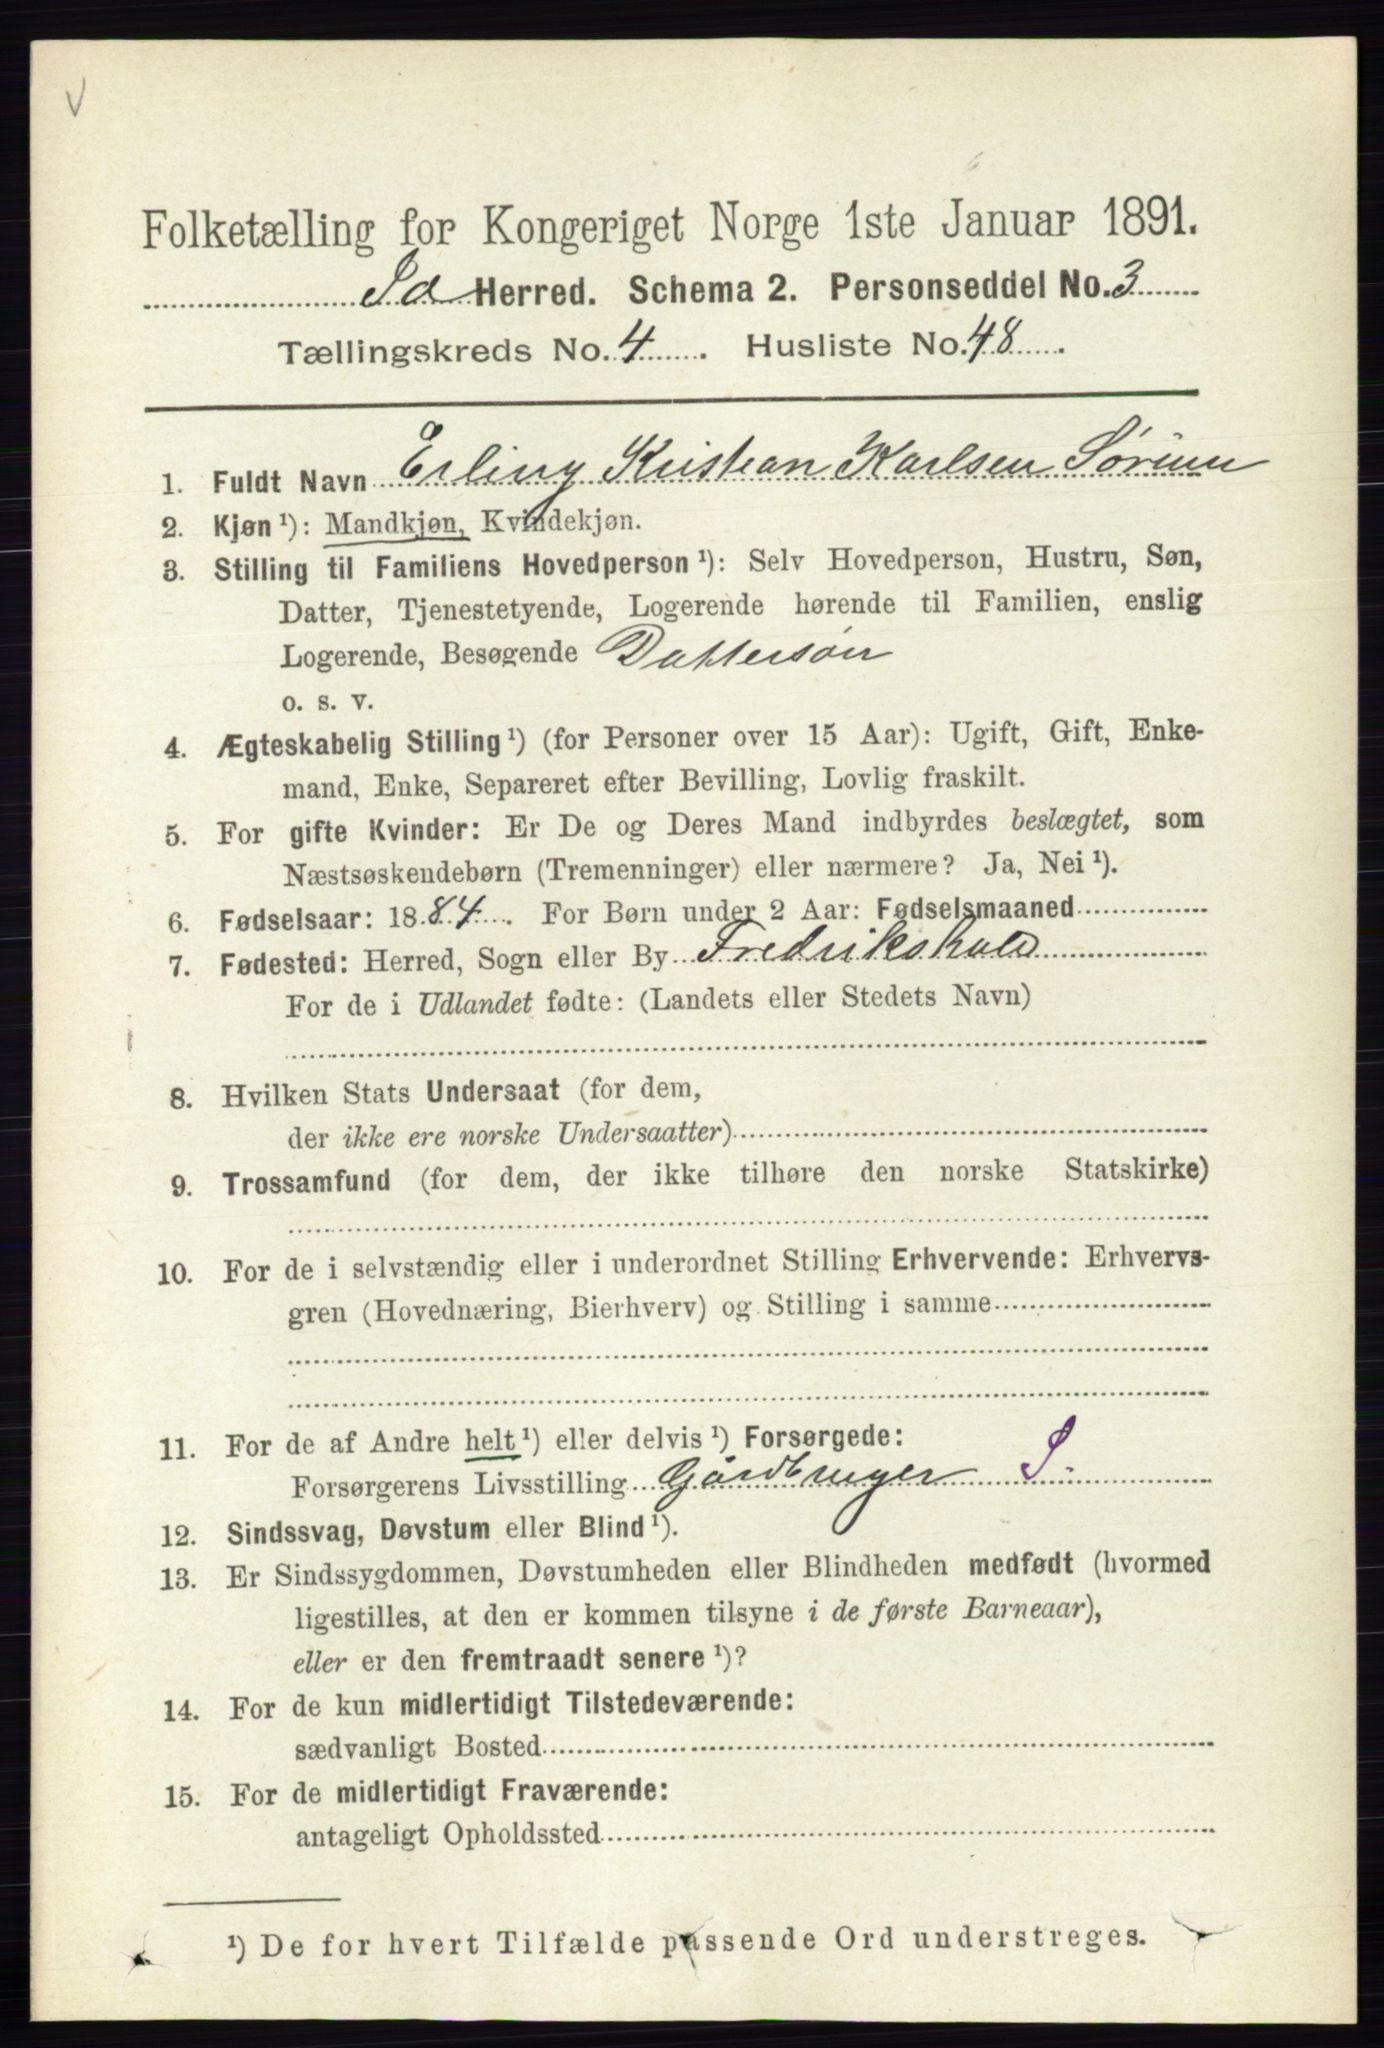 V
Folketælling for Kongeriget Norge 1ste Januar 1891.
Id Herred. Schema 2. Personseddel No. 3
Tællingskreds No. 4. Husliste No. 48.
1. Fuldt Navn Erling Kristian Karlsen Sørum
2. Kjøn ¹): Mandkjøn, Kvindekjøn.
3. Stilling til Familiens Hovedperson ¹): Selv Hovedperson, Hustru, Søn,
Datter, Tjenestetyende, Logerende hørende til Familien, enslig
Logerende, Besøgende Dattersøn
o. s. v.
4. Ægteskabelig Stilling ¹) (for Personer over 15 Aar): Ugift, Gift, Enke-
mand, Enke, Separeret efter Bevilling, Lovlig fraskilt.
5. For gifte Kvinder: Er De og Deres Mand indbyrdes beslægtet, som
Næstsøskendebørn (Tremenninger) eller nærmere? Ja, Nei ¹).
6. Fødselsaar: 1884. For Børn under 2 Aar: Fødselsmaaned
7. Fødested: Herred, Sogn eller By Fredrikshald
For de i Udlandet fødte: (Landets eller Stedets Navn)
8. Hvilken Stats Undersaat (for dem,
der ikke ere norske Undersaatter)
9. Trossamfund (for dem, der ikke tilhøre den norske Statskirke)
10. For de i selvstændig eller i underordnet Stilling Erhvervende: Erhvervs-
gren (Hovednæring, Bierhverv) og Stilling i samme
11. For de af Andre helt ¹) eller delvis ¹) Forsørgede:
Forsørgerens Livsstilling Gårdbruger S.
12. Sindssvag, Døvstum eller Blind ¹).
13. Er Sindssygdommen, Døvstumheden eller Blindheden medfødt (hvormed
ligestilles, at den er kommen tilsyne i de første Barneaar),
eller er den fremtraadt senere ¹)?
14. For de kun midlertidigt Tilstedeværende:
sædvanligt Bosted
15. For de midlertidigt Fraværende:
antageligt Opholdssted
¹) De for hvert Tilfælde passende Ord understreges.